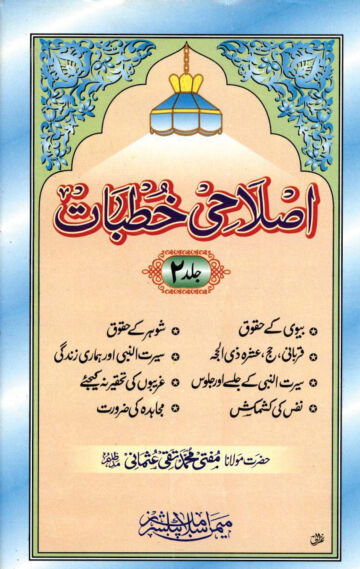 اصلاحی خطبات
جلد ۲
بیوی کے حقوق
شوہر کے حقوق
قربانی، حج، عشرہ ذی الحجہ
سیرت النبی اور ہماری زندگی
سیرت النبی کے جلسے اور جلوس
غریبوں کی تحقیر نہ کیجئے
نفس کی کشمکش
مجاہدہ کی ضرورت
حضرت مولانا مفتی محمد تقی عثمانی مدظلہم
میمن اسلامک پبلشرز